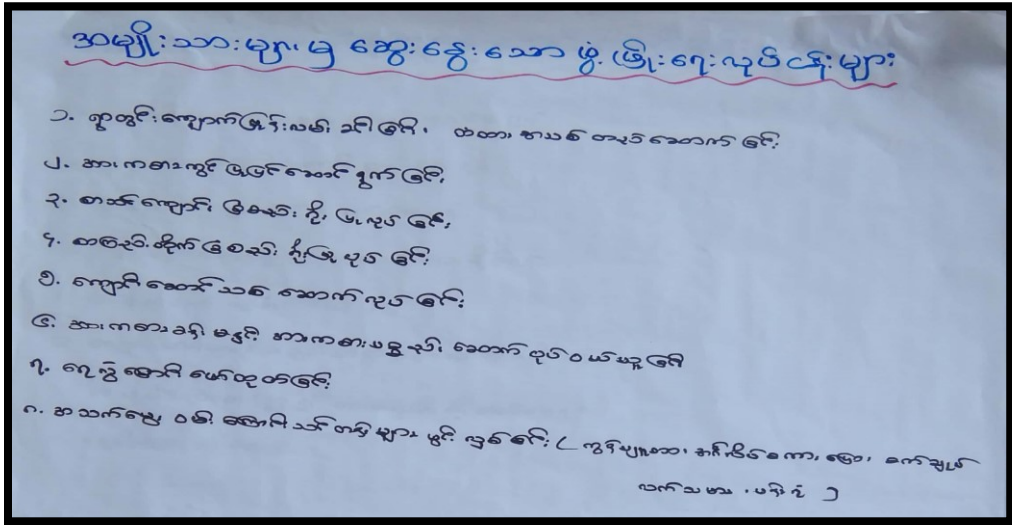 အမျိုးသားများမှ ဆွေးနွေးသော ဖွံ့ဖြိုးရေးလုပ်ငန်းများ
၁. ရွာတွင်းကျောက်ဖြန့်လမ်းခင်းခြင်း၊ တံတားအသစ်တည်ဆောက်ခြင်း
၂. အားကစားကွင်းပြုပြင်ဆောင်ရွက်ခြင်း
၃. စာသင်ကျောင်းခြံစည်းရိုးပြုလုပ်ခြင်း
၄. စာကြည့်တိုက်ခြံစည်းရိုးပြုလုပ်ခြင်း
၅. ကျောင်းဆောင်သစ်ဆောက်လုပ်ခြင်း
၆. အားကစားခန်းမနှင့် အားကစားပစ္စည်း ဆောက်လုပ်ဝယ်ယူခြင်း
၇. ရေနွံမြောင်းဖော်ထုတ်ခြင်း
၈. အသက်မွေးဝမ်းကျောင်းသင်တန်းများဖွင့်လှစ်ခြင်း (ကွန်ပျူတာ၊ အင်္ဂလိပ်စကားပြော၊ စက်ချုပ်
လက်သမား၊ ပန်းရံ)